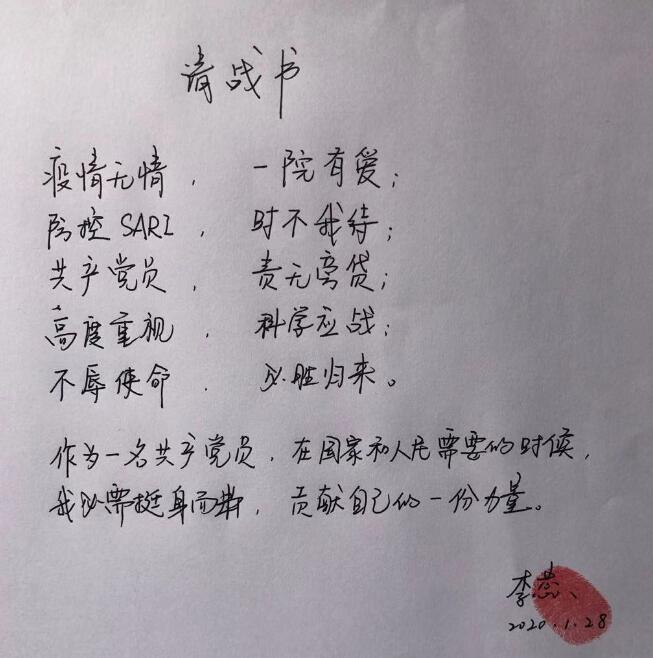 请战书
疫情无情，一院有爱；
防控SARI，时不我待；
共产党员，责无旁贷；
高度重视，科学应战；
不辱使命，必胜归来。
作为一名共产党员，在国家和人民需要的时候，
我必需挺身而出，贡献自己的一份力量。
李蕊
2020.1.28